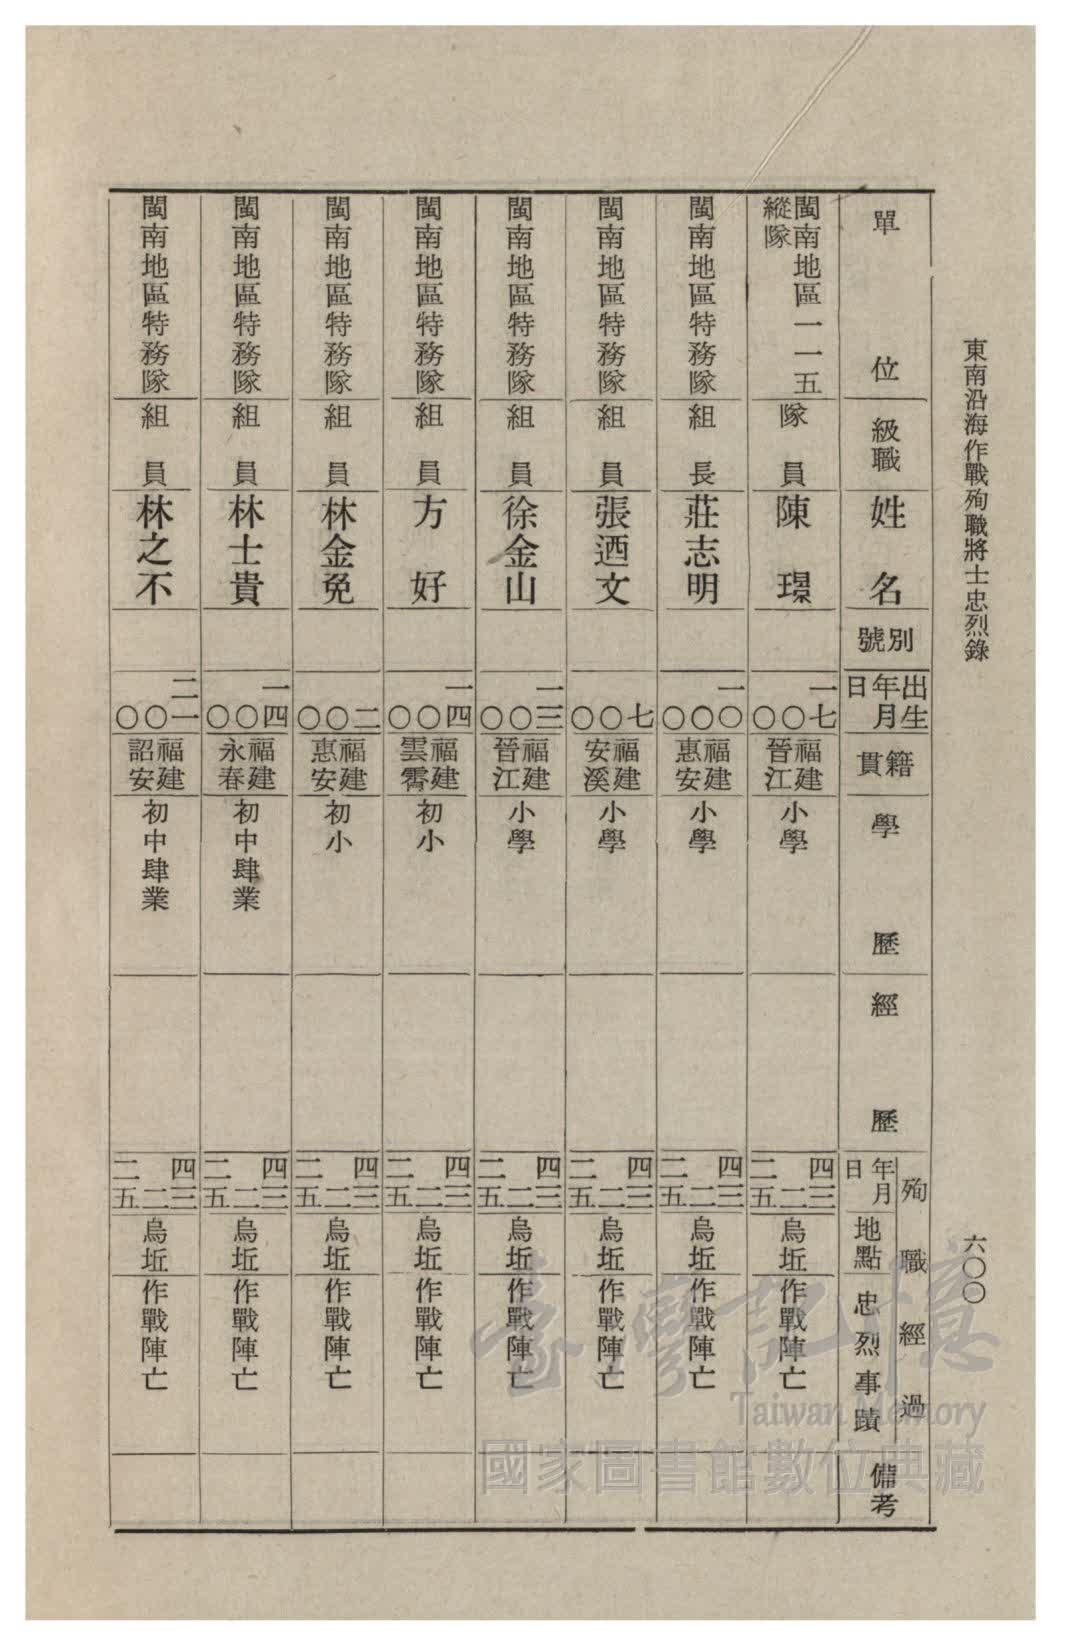 東南沿海作戰殉職將士忠烈錄
六〇〇
單位
級職
姓名
別號
出生年月日
籍貫
學歷
經歷
殉職經過
年月日
地點
忠烈事蹟
備考
閩南地區一一五縱隊
隊員
陳璟
一七〇〇
福建晉江
小學
四三二二五
烏坵
作戰陣亡
閩南地區特務隊
組長
莊志明
一〇〇〇
福建惠安
小學
四三二二五
烏坵
作戰陣亡
閩南地區特務隊
組員
張迺文
七〇〇
福建安溪
小學
四三二二五
烏坵
作戰陣亡
閩南地區特務隊
組員
徐金山
一三〇〇
福建晉江
小學
四三二二五
烏坵
作戰陣亡
閩南地區特務隊
組員
方好
一四〇〇
福建雲霄
初小
四三二二五
烏坵
作戰陣亡
閩南地區特務隊
組員
林金免
二〇〇
福建惠安
初小
四三二二五
烏坵
作戰陣亡
閩南地區特務隊
組員
林士貴
一四〇〇
福建永春
初中肆業
四三二二五
烏坵
作戰陣亡
閩南地區特務隊
組員
林之不
二一〇〇
福建詔安
初中肆業
四三二二五
烏坵
作戰陣亡
臺灣記憶
Taiwan Memory
國家圖書館數位典藏